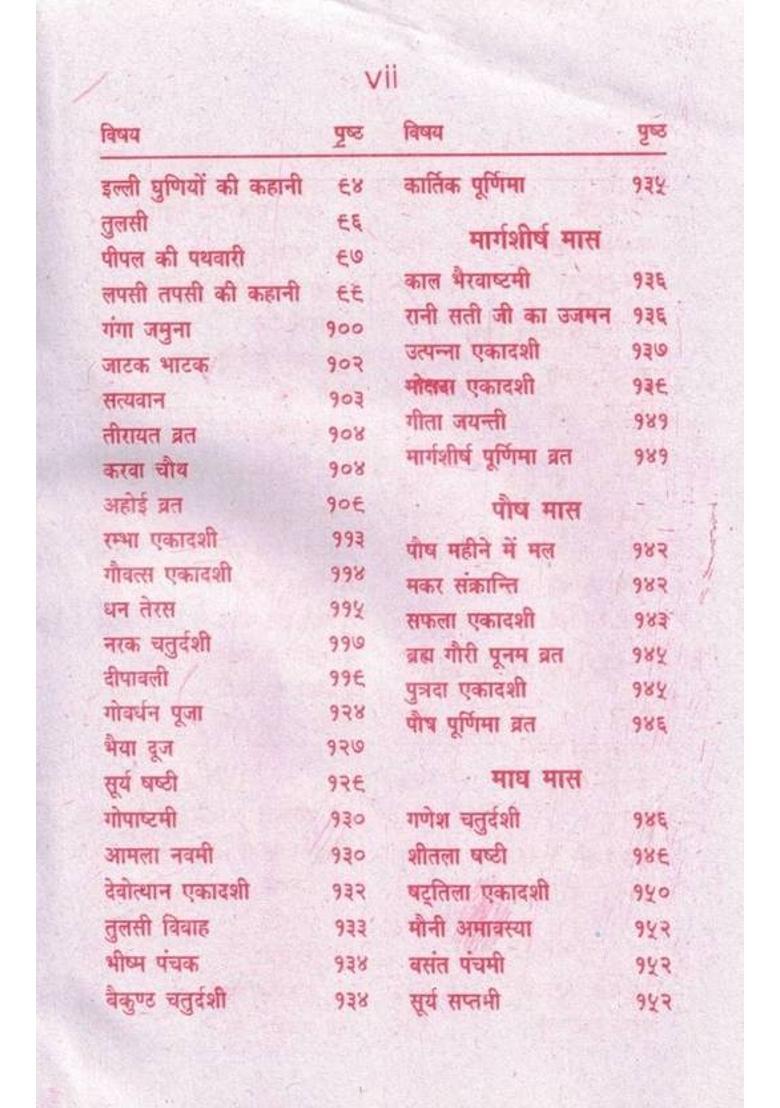 vii
विषय पृष्ठ
इल्ली घुणियों की कहानी ९४
तुलसी ९६
पीपल की पथवारी ९७
लपसी तपसी की कहानी ९९
गंगा जमुना १००
जाटक भाटक १०२
सत्यवान १०३
तीरायत व्रत १०४
करवा चौथ १०४
अहोई व्रत १०९
रम्भा एकादशी ११३
गौवत्स एकादशी ११४
धन तेरस ११५
नरक चतुर्दशी ११७
दीपावली ११९
गोवर्धन पूजा १२४
भैया दूज १२७
सूर्य षष्ठी १२९
गोपाष्टमी १३०
आमला नवमी १३०
देवोत्थान एकादशी १३२
तुलसी विवाह १३३
भीष्म पंचक १३४
बैकुण्ठ चतुर्दशी १३४
विषय पृष्ठ
कार्तिक पूर्णिमा १३५
मार्गशीर्ष मास
काल भैरवाष्टमी १३६
रानी सती जी का उजमन १३६
उत्पन्ना एकादशी १३७
एकादशी १३९
गीता जयन्ती १४१
मार्गशीर्ष पूर्णिमा व्रत १४१
पौष मास
पौष महीने में मल १४२
मकर संक्रान्ति १४२
सफला एकादशी १४३
ब्रह्म गौरी पूनम व्रत १४५
पुत्रदा एकादशी १४५
पौष पूर्णिमा व्रत १४६
माघ मास
गणेश चतुर्दशी १४६
शीतला षष्ठी १४९
षट्तिला एकादशी १५०
मौनी अमावस्या १५२
बसंत पंचमी १५२
सूर्य सप्तमी १५२